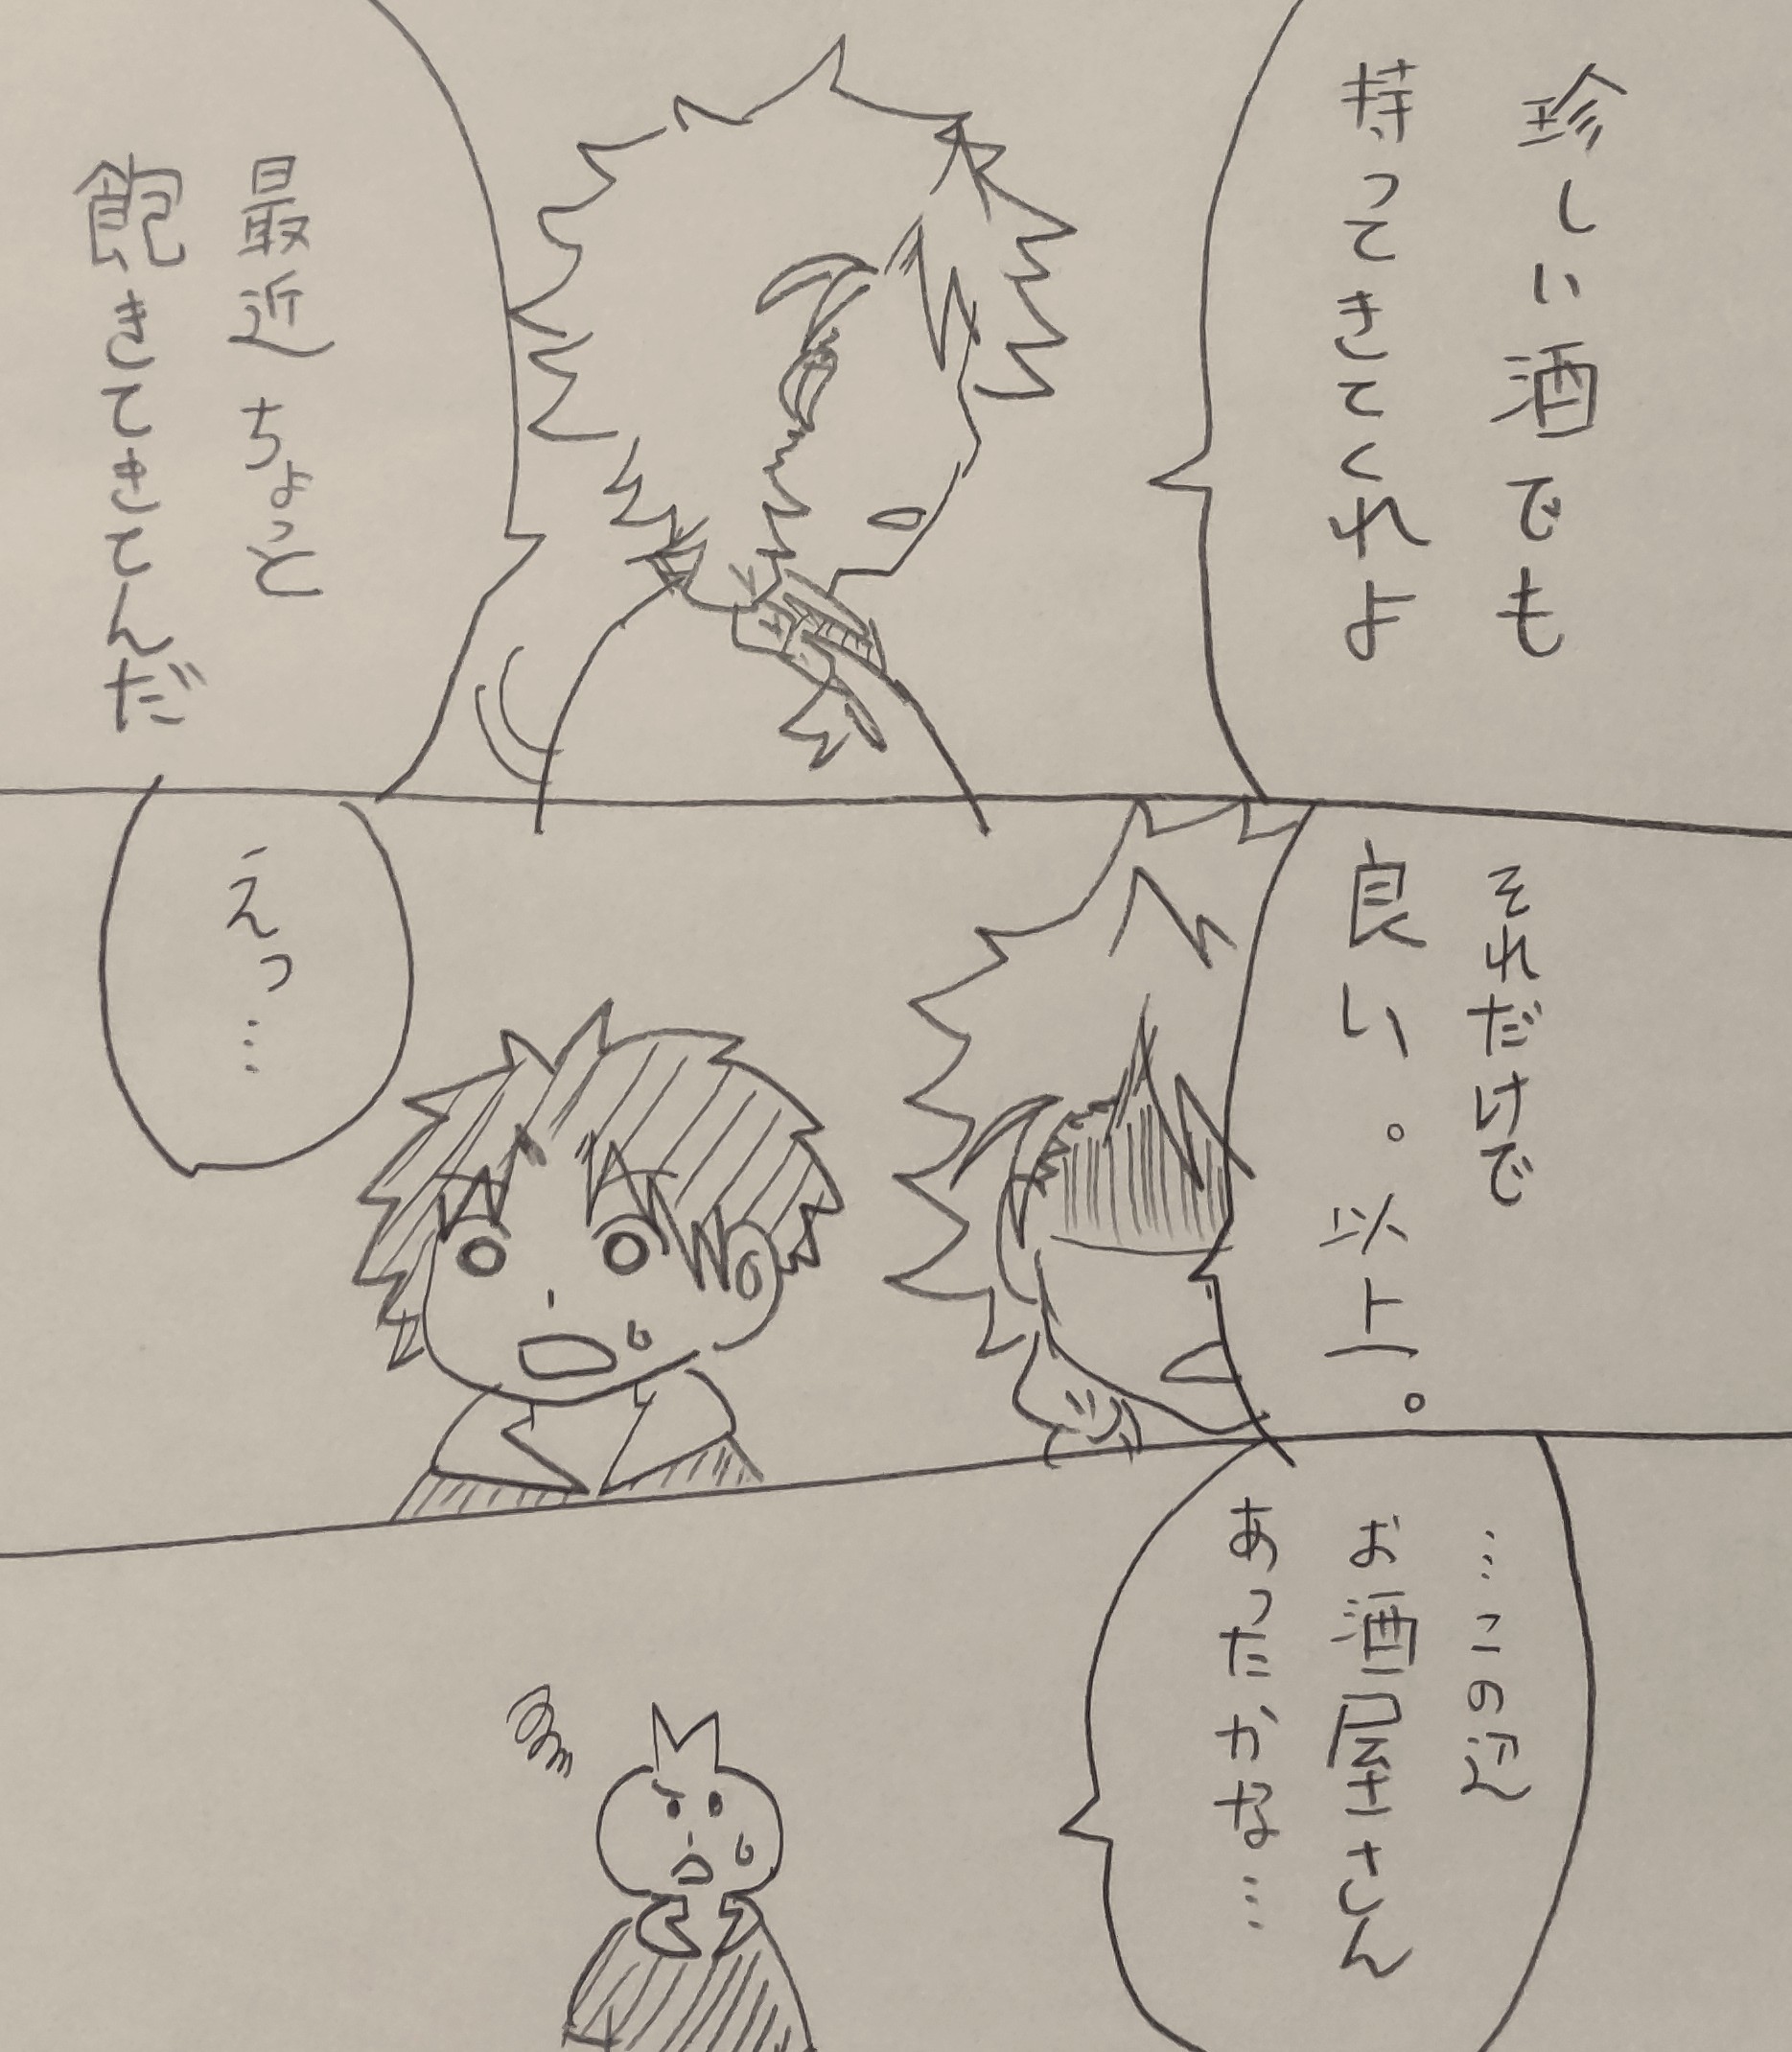 珍しい酒でも
持ってきてくれよ
最近ちょっと
飽きてきてんだ
それだけで
良い。以上。
えっ…
…この辺
お酒屋さん
あったかな…